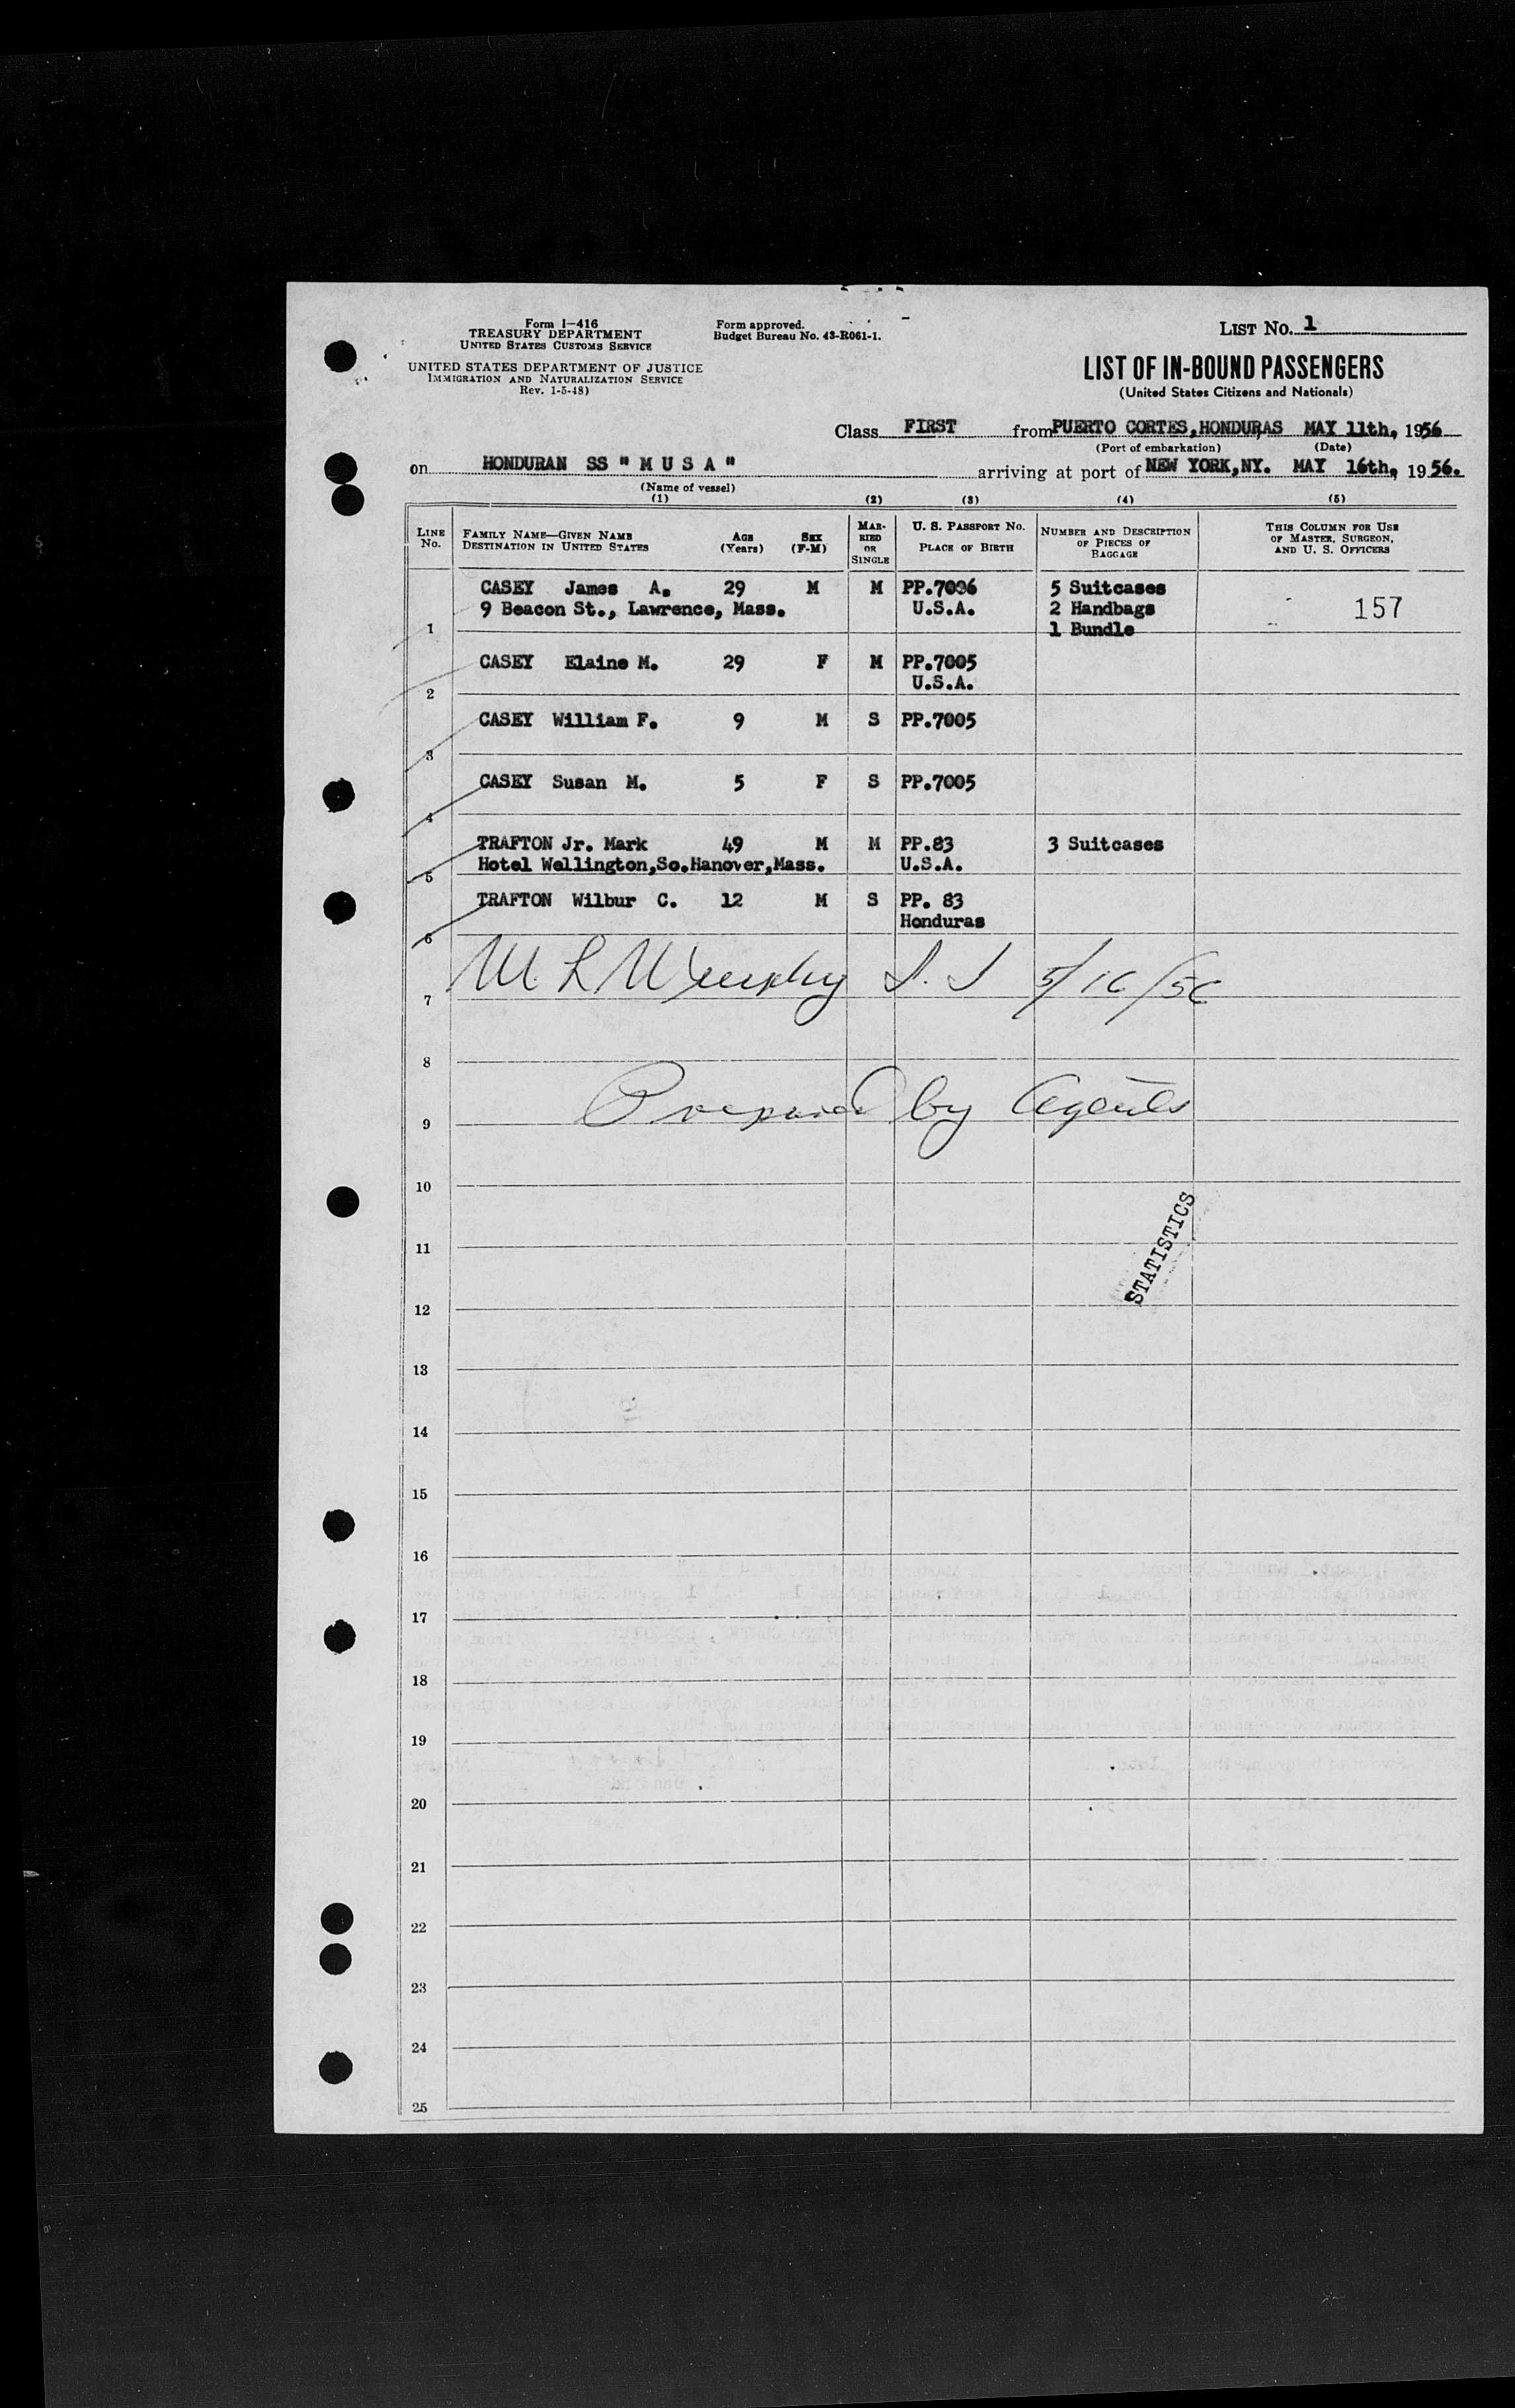 Form I-416
TREASURY DEPARTMENT
UNITED STATES CUSTOMS SERVICE
UNITED STATES DEPARTMENT OF JUSTICE
IMMIGRATION AND NATURALIZATION SERVICE
Rev. 1-5-48)
Form approved.
Budget Bureau No. 43-R061-1.
LIST NO. 1
LIST OF IN-BOUND PASSENGERS
(United States Citizens and Nationals)
Class FIRST from PUERTO CORTES, HONDURAS MAY 11th, 1956
(Port of embarkation) (Date)
on HONDURAN SS " M U S A " arriving at port of NEW YORK, NY. MAY 16th, 1956.
(Name of vessel)
(1) (2) (3) (4) (5)
LINE No. FAMILY NAME—GIVEN NAME DESTINATION IN UNITED STATES AGE (Years) SEX (F-M) MARRIED OR SINGLE U. S. PASSPORT NO. PLACE OF BIRTH NUMBER AND DESCRIPTION OF PIECES OF BAGGAGE THIS COLUMN FOR USE OF MASTER, SURGEON, AND U. S. OFFICERS
CASEY James A. 29 M M PP.7006 5 Suitcases
9 Beacon St., Lawrence, Mass. U.S.A. 2 Handbags 157
1 1 Bundle
CASEY Elaine M. 29 F M PP.7005
2 U.S.A.
CASEY William F. 9 M S PP.7005
3
CASEY Susan M. 5 F S PP.7005
4
TRAFTON Jr. Mark 49 M M PP.83 3 Suitcases
Hotel Wellington, So. Hanover, Mass. U.S.A.
5
TRAFTON Wilbur C. 12 M S PP. 83
Honduras
6
M L Murphy I. I 5/16/56
7
8
Prepared by Agents
9
10
11
STATISTICS
12
13
14
15
16
17
18
19
20
21
22
23
24
25